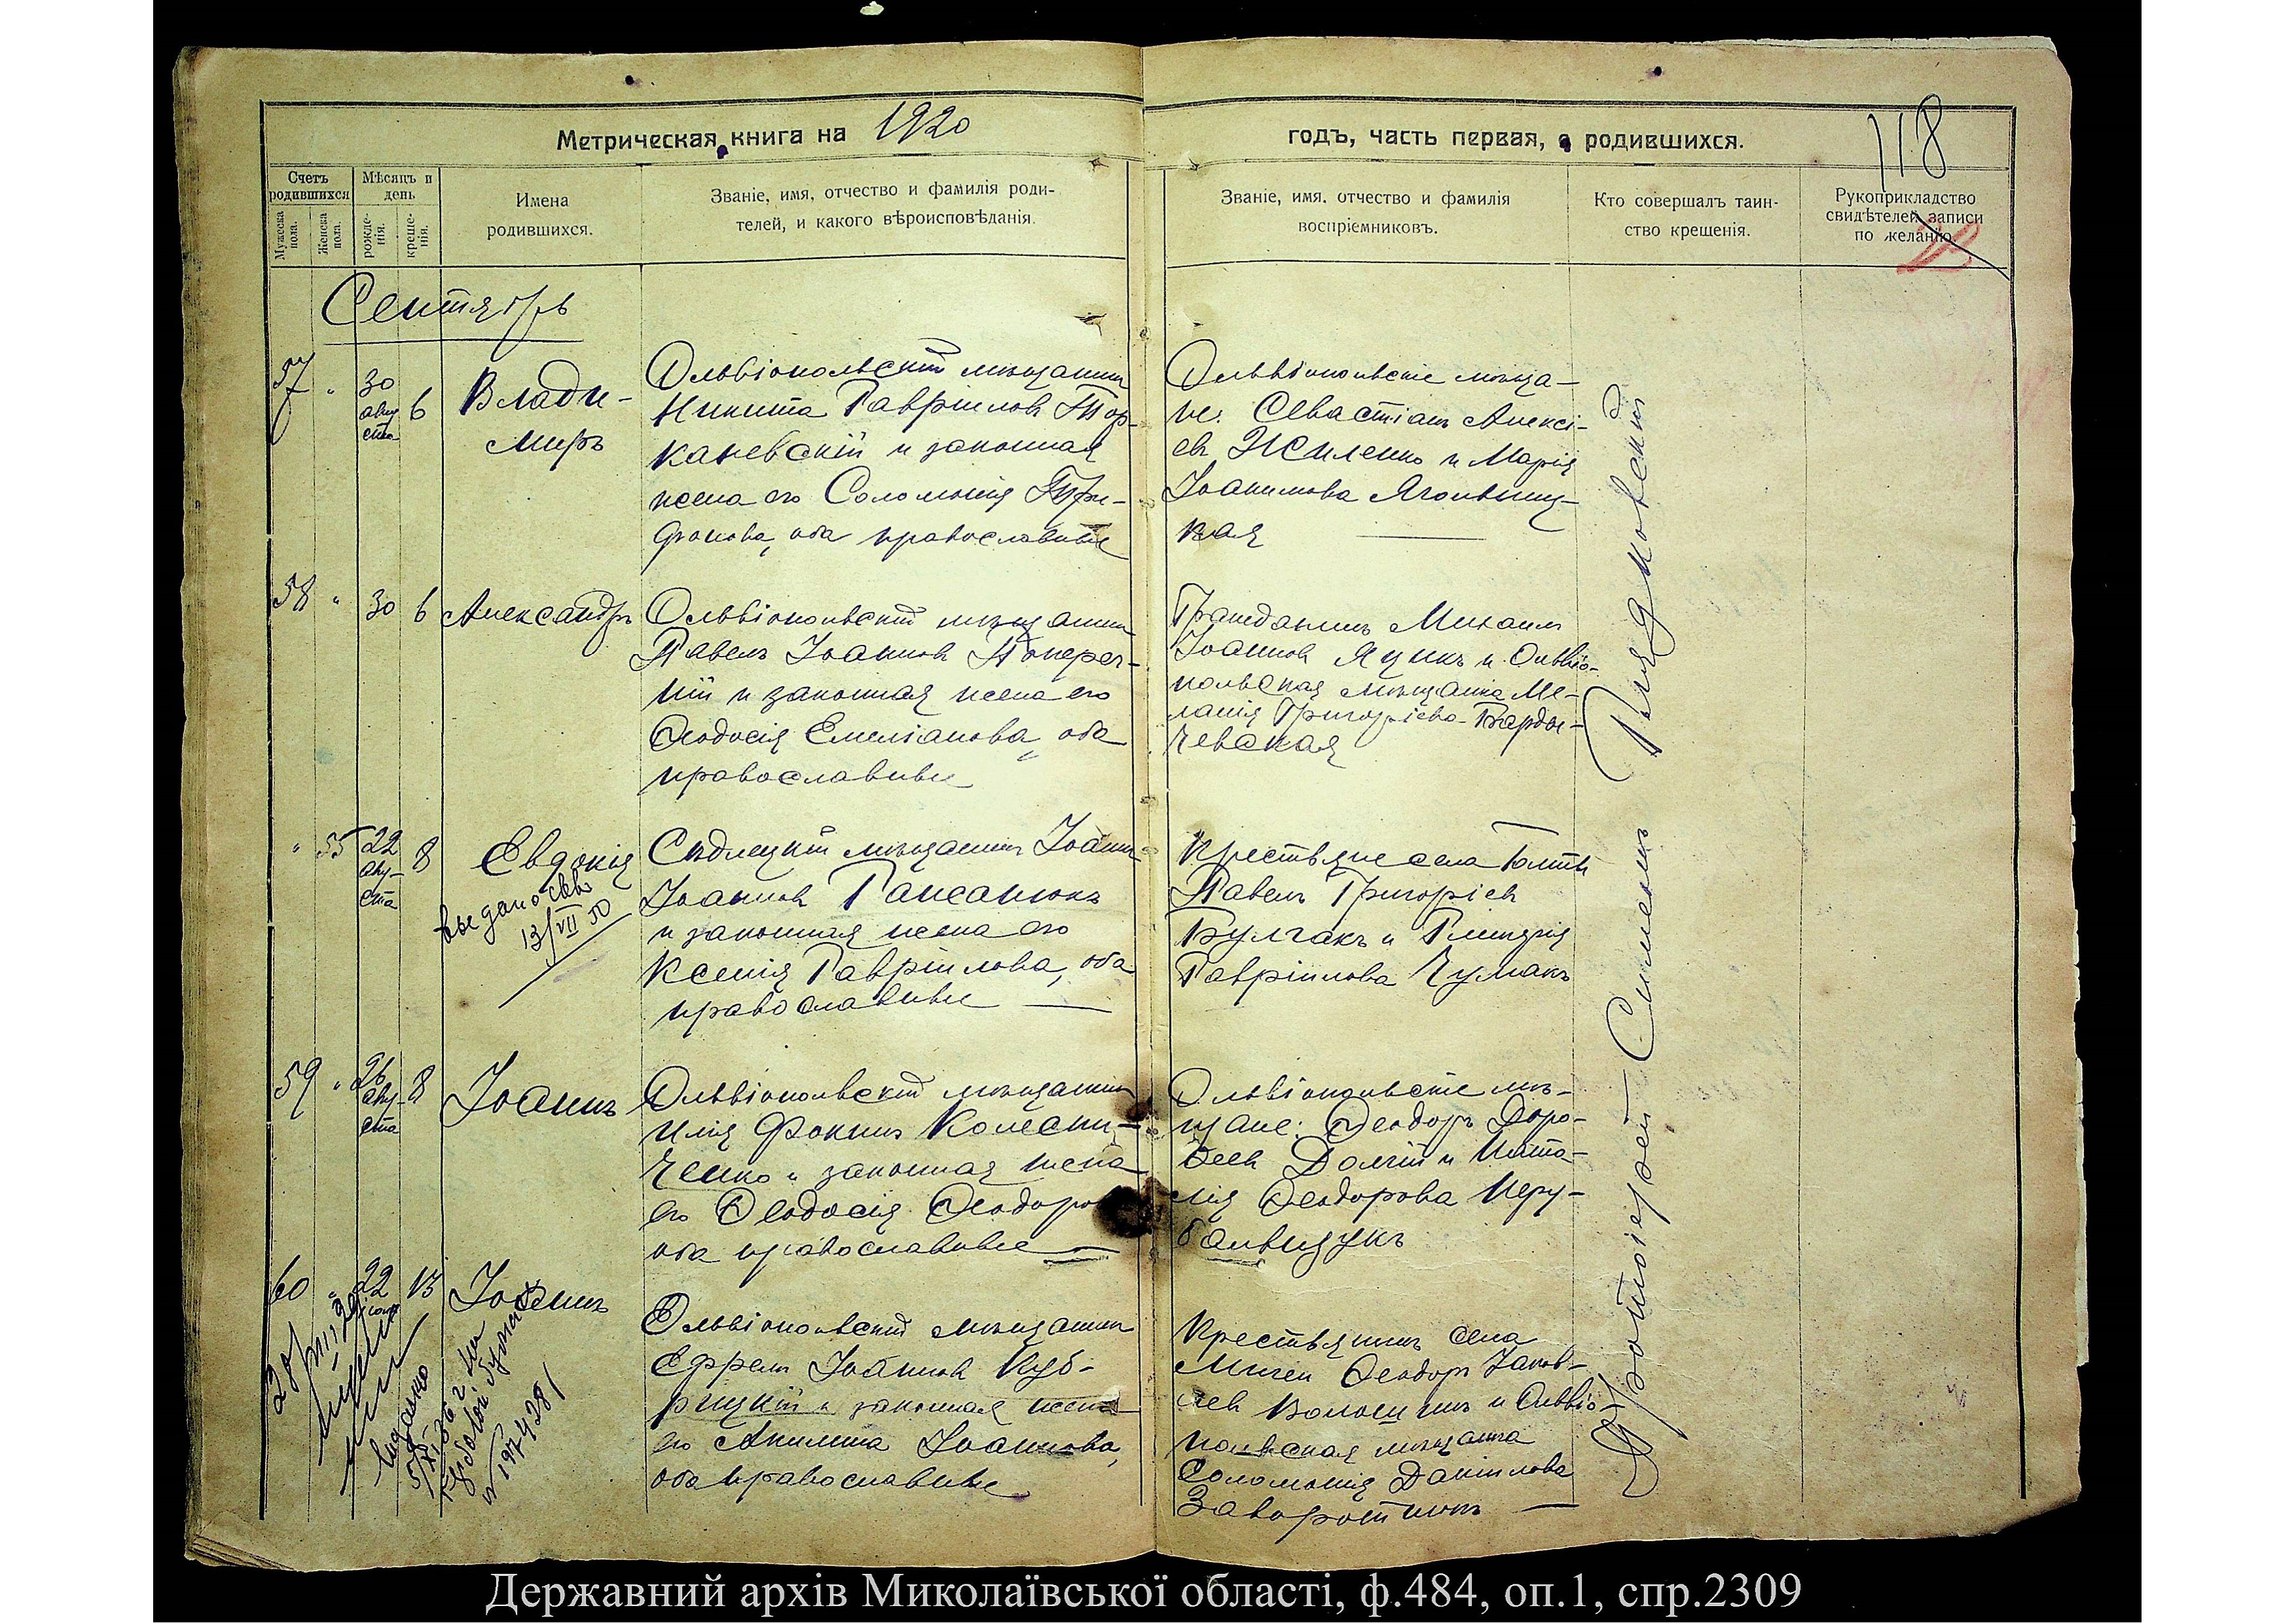 Метрическая книга на 1920
годъ, часть первая, о родившихся.
118
Счетъ родившихся
Мужеска пола.
Женска пола.
Мѣсяцъ и день
рожденія.
крещенія.
Имена
родившихся.
Званіе, имя, отчество и фамилія роди-
телей, и какого вѣроисповѣданія.
Званіе, имя, отчество и фамилія
воспріемниковъ.
Кто совершалъ таин-
ство крещенія.
Рукоприкладство
свидѣтелей записи
по желанію.
Сентябрь
57 " 30 авгу-ста 6
Влади-
миръ
Ольвіопольскій мѣщанинъ
Никита Гавріиловъ Тор-
каневскій и законная
жена его Соломонія Три-
фонова, оба православные
Ольвіопольскіе мѣща-
не: Севастіанъ Алексі-
евъ Жиленко и Марія
Іоакимова Ягольниц-
кая
58 " 30 6 Александръ
Ольвіопольскій мѣщанинъ
Павелъ Іоанновъ Попереч-
ній и законная жена его
Ѳеодосія Емеліанова, оба
православные
Гражданинъ Михаилъ
Іоанновъ Яцикъ и Ольвіо-
польская мѣщанка Ме-
ланія Григоріева Барды-
чевская
" 55 22 авгу-ста 8 Евдокія
выдано свѣд
13/VII 50
Сѣдлецкій мѣщанинъ Іоаннъ
Іоанновъ Гапсанюкъ
и законная жена его
Ксенія Гавріилова, оба
православные
Крестьяне села Голты
Павелъ Григоріевъ
Булгакъ и Гликерія
Гавріилова Чумакъ
59 " 26 авгу-ста 8 Іоаннъ
Ольвіопольскій мѣщанинъ
Илія Фокинъ Колесни-
ченко и законная жена
его Ѳеодосія Ѳеодоро
оба православные
Ольвіопольскіе мѣ-
щане: Ѳеодоръ Доро-
ѳеевъ Долгій и Ната-
лія Ѳеодорова Неру-
бальщукъ
60 " 22 13 Іоаннъ
Ольвіопольскій мѣщанинъ
Ефремъ Іоанновъ Куб-
рицкій и законная жена
его Акилина Іоаннова,
оба православные
Крестьянинъ села
Мигеи Ѳеодоръ Іаков-
левъ Волошинъ и Ольвіо-
польская мѣщанка
Соломонія Даніилова
Заворотнюкъ
Протоіерей Симеонъ
Державний архів Миколаївської області, ф.484, оп.1, спр.2309